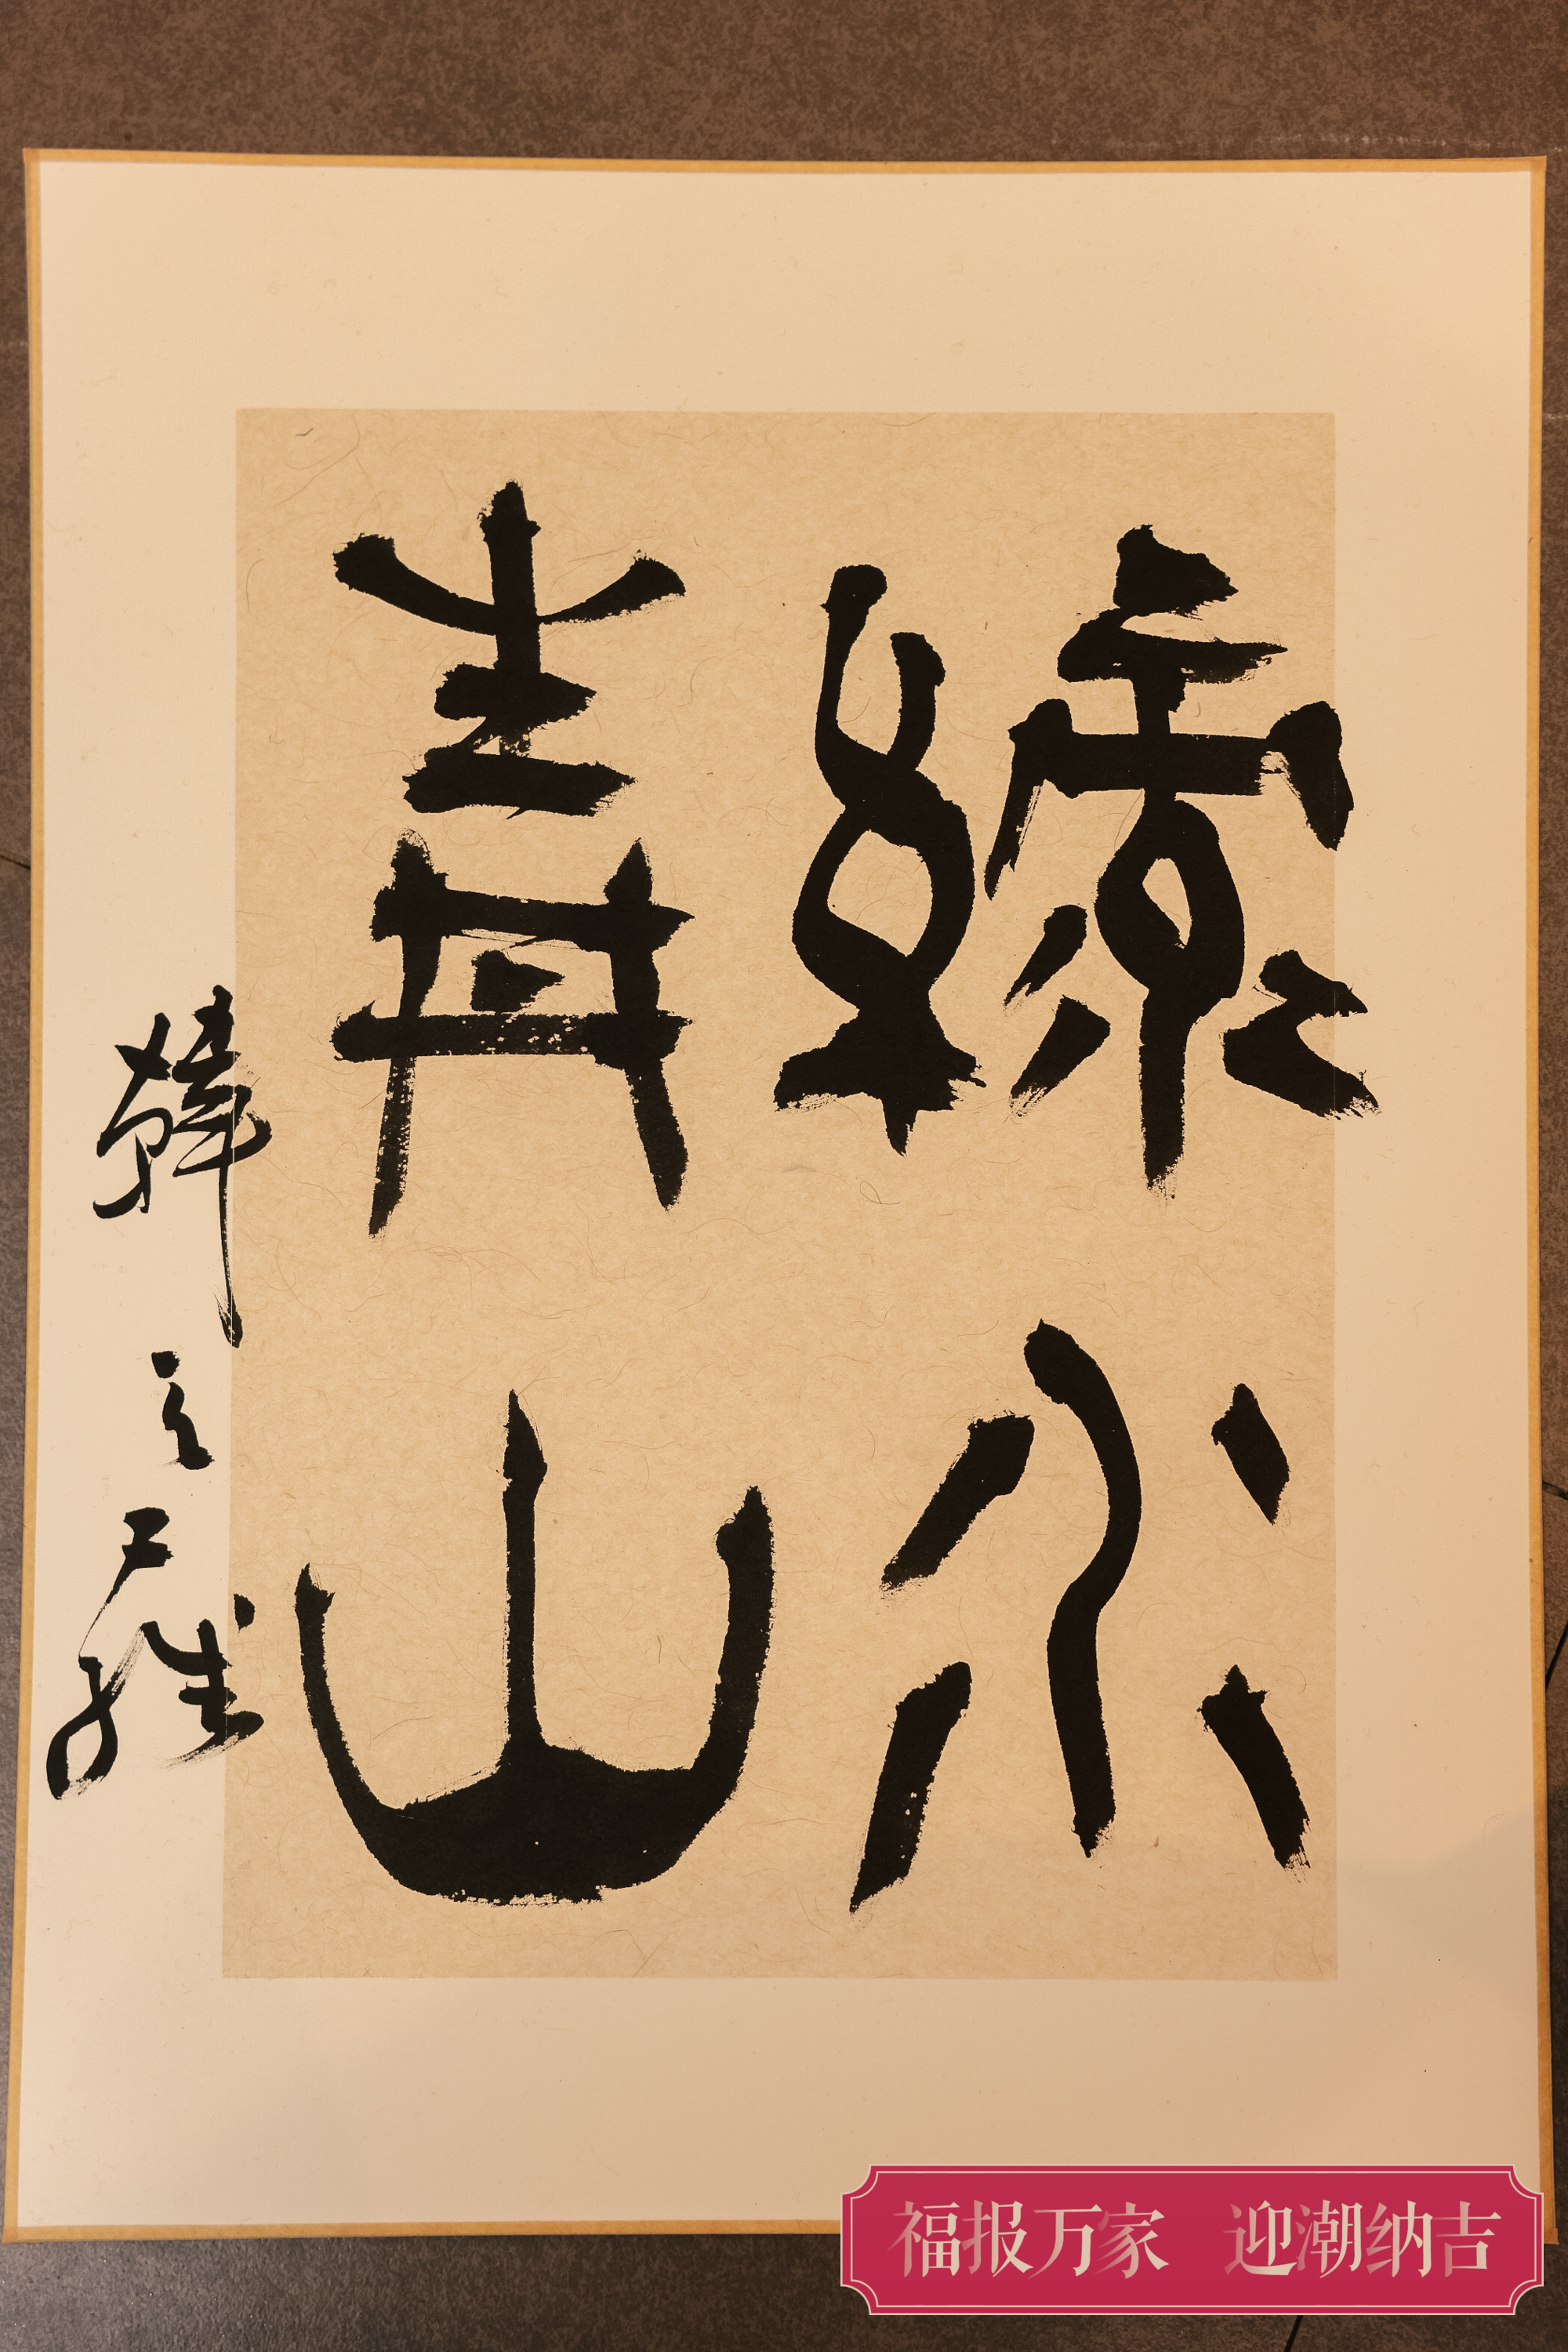 綠水
青山
韓
福报万家 迎潮纳吉